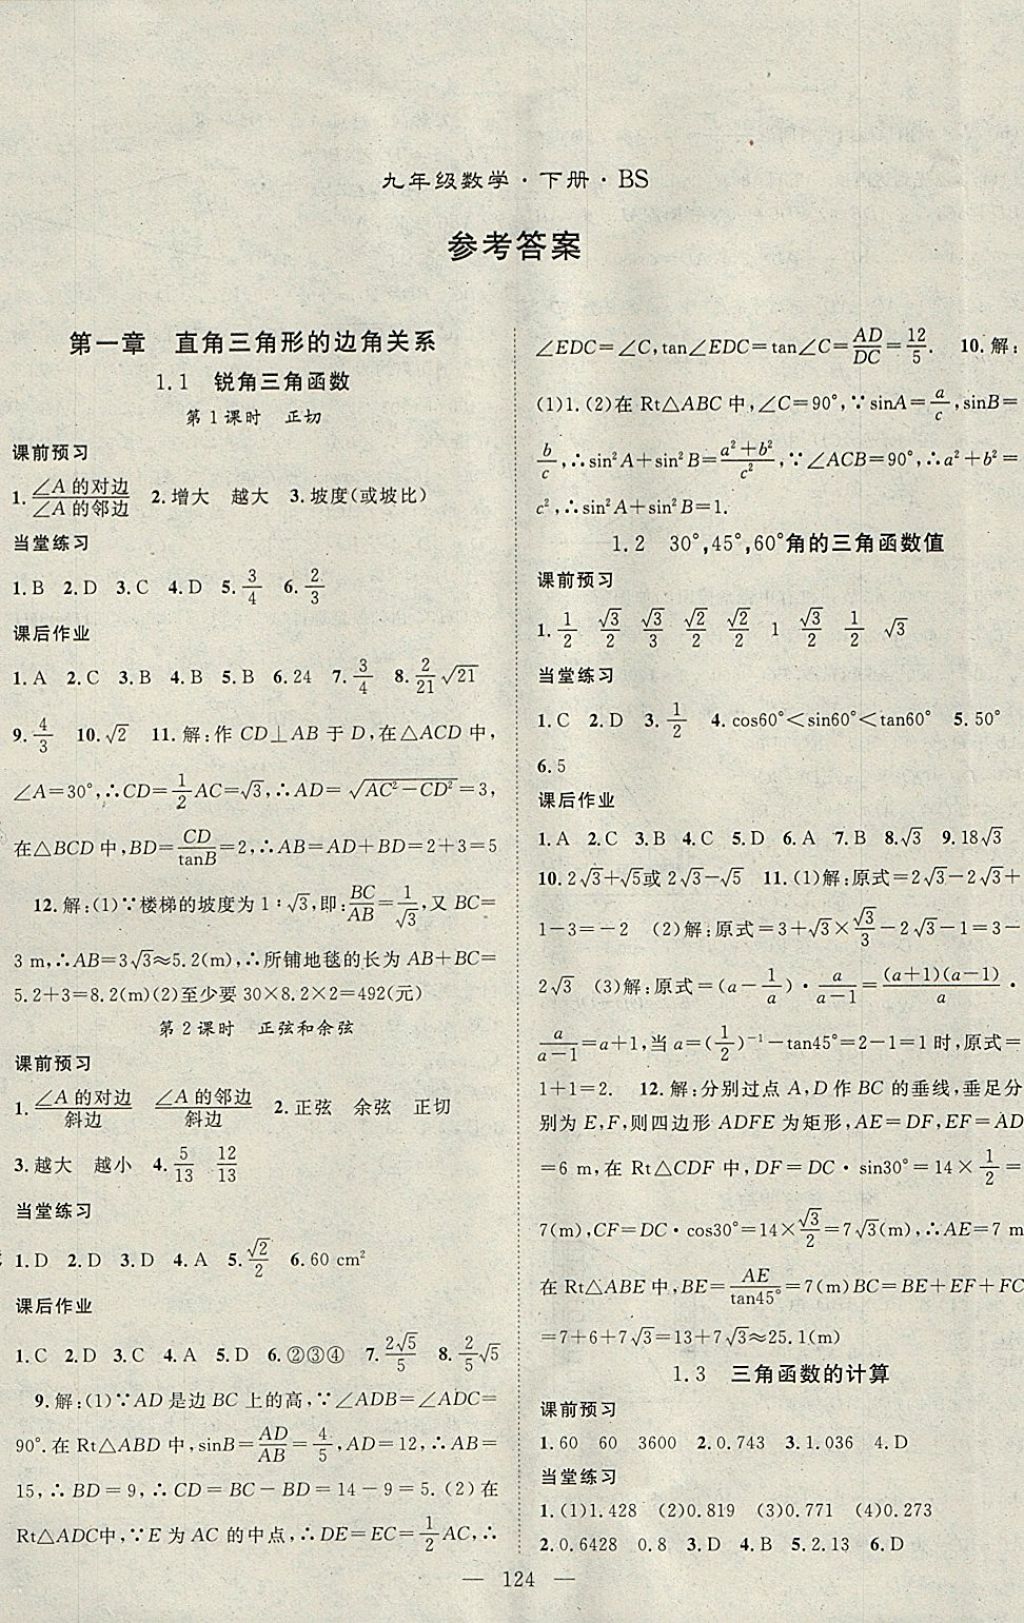 九年级数学·下册·BS
参考答案
第一章 直角三角形的边角关系
1.1 锐角三角函数
第1课时 正切
课前预习
1.∠A的对边/∠A的邻边 2.增大 越大 3.坡度(或坡比)
当堂练习
1.B 2.D 3.C 4.D 5.3/4 6.2/3
课后作业
1.A 2.C 3.B 4.B 5.B 6.24 7.3/4 8.2/21√21
9.4/3 10.√2 11.解:作CD⊥AB于D,在△ACD中,
∠A=30°,∴CD=1/2AC=√3,∴AD=√(AC²-CD²)=3,
在△BCD中,BD=CD/tanB=2,∴AB=AD+BD=2+3=5
12.解:(1)∵楼梯的坡度为1∶√3,即:BC/AB=1/√3,又BC=
3 m,∴AB=3√3≈5.2(m),∴所铺地毯的长为AB+BC=
5.2+3=8.2(m)(2)至少要30×8.2×2=492(元)
第2课时 正弦和余弦
课前预习
1.∠A的对边/斜边 ∠A的邻边/斜边 2.正弦 余弦 正切
3.越大 越小 4.5/13 12/13
当堂练习
1.D 2.D 3.D 4.A 5.√2/2 6.60 cm²
课后作业
1.C 2.D 3.C 4.A 5.D 6.②③④ 7.2√5/5 8.2/5√5
9.解:(1)∵AD是边BC上的高,∴∠ADB=∠ADC=
90°.在Rt△ABD中,sinB=AD/AB=4/5,AD=12,∴AB=
15,∴BD=9,∴CD=BC-BD=14-9=5.(2)在
Rt△ADC中,∵E为AC的中点,∴DE=EC=1/2AC,∴
∠EDC=∠C,tan∠EDC=tan∠C=AD/DC=12/5. 10.解:
(1)1.(2)在Rt△ABC中,∠C=90°,∵sinA=a/c,sinB=
b/c,∴sin²A+sin²B=(a²+b²)/c²,∵∠ACB=90°,∴a²+b²=
c²,∴sin²A+sin²B=1.
1.2 30°,45°,60°角的三角函数值
课前预习
1.1/2 √3/2 √3/3 √2/2 √2/2 1 √3/2 1/2 √3
当堂练习
1.C 2.D 3.1/2 4.cos60°<sin60°<tan60° 5.50°
6.5
课后作业
1.A 2.C 3.B 4.C 5.D 6.A 7.B 8.√3 9.18√3
10.2√3+√5或2√3-√5 11.(1)解:原式=2√3-2√3+
1-3=-2 (2)解:原式=3+√3×√3/3-2√3-1=3-
2√3 (3)解:原式=(a-1/a)·a/(a-1)=(a+1)(a-1)/a·
a/(a-1)=a+1,当a=(1/2)⁻¹-tan45°=2-1=1时,原式=
1+1=2. 12.解:分别过点A,D作BC的垂线,垂足分
别为E,F,则四边形ADFE为矩形,AE=DF,EF=AD
=6 m,在Rt△CDF中,DF=DC·sin30°=14×1/2=
7(m),CF=DC·cos30°=14×√3/2=7√3(m),∴AE=7 m
在Rt△ABE中,BE=AE/tan45°=7(m)BC=BE+EF+FC
=7+6+7√3=13+7√3≈25.1(m)
1.3 三角函数的计算
课前预习
1.60 60 3600 2.0.743 3.1.036 4.D
当堂练习
1.(1)1.428 (2)0.819 (3)0.771 (4)0.273
2.0.6428 0.8 3.D 4.B 5.2.13 6.D
— 124 —